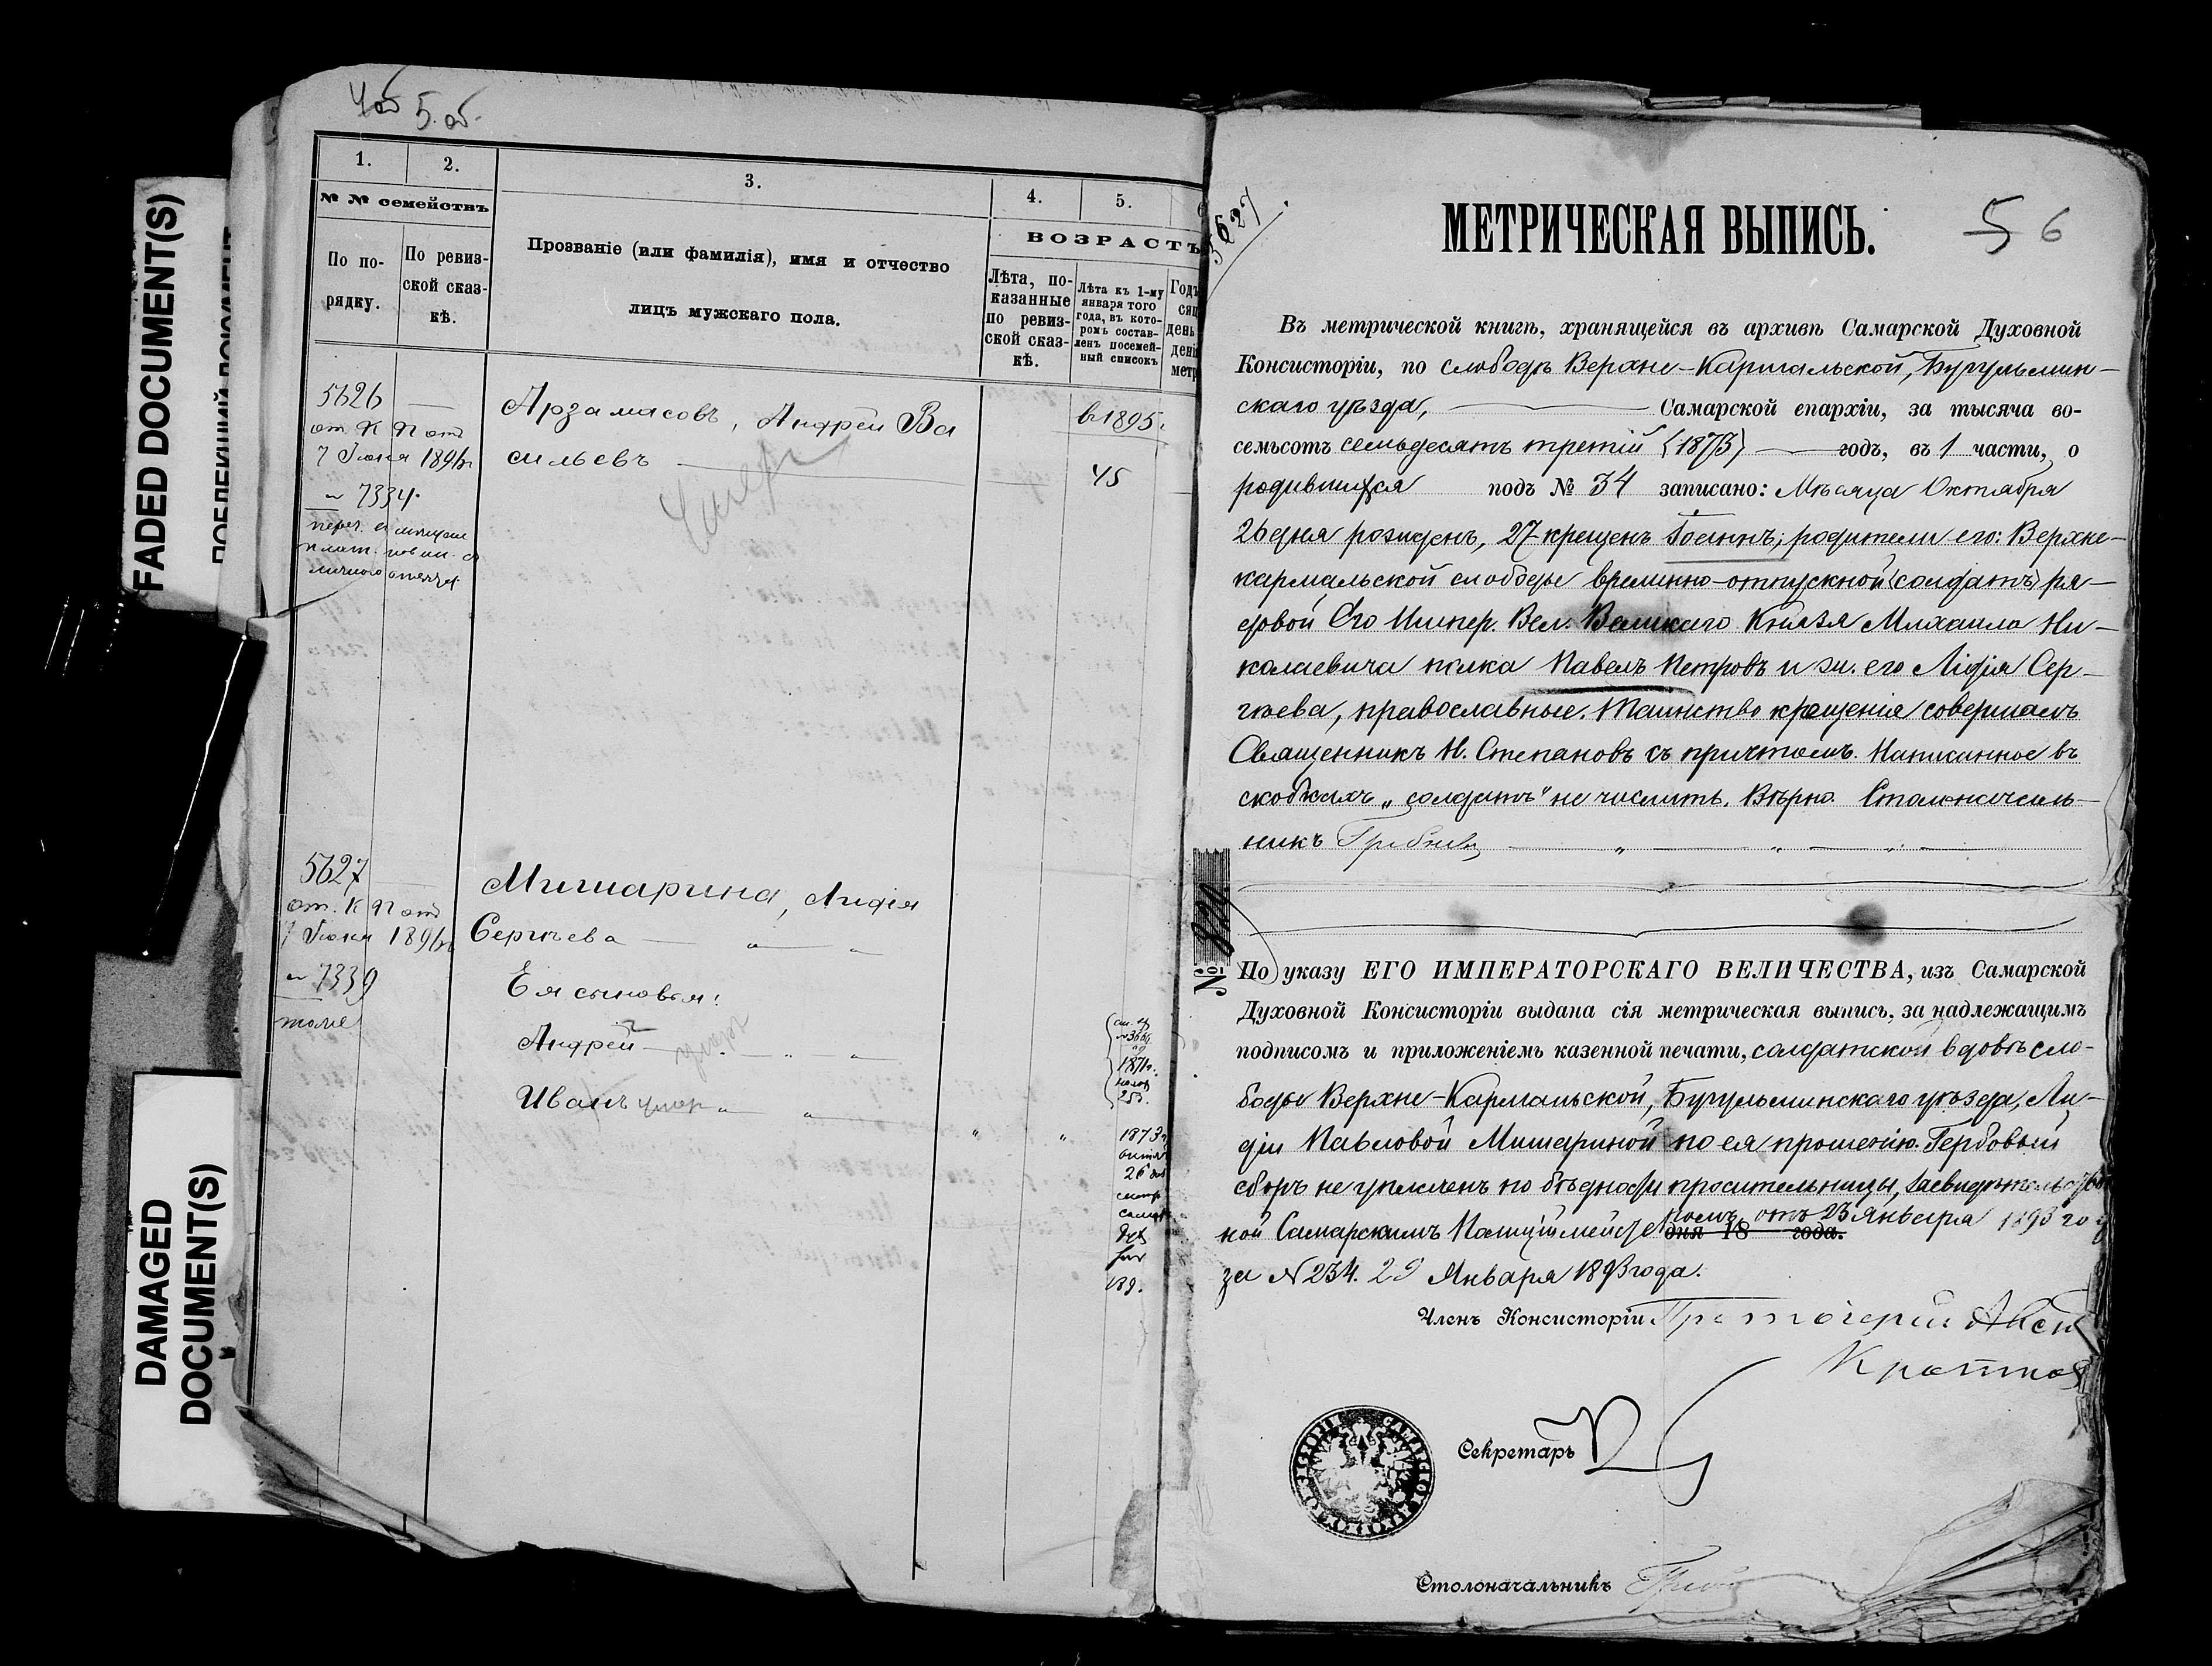 4об 5.об.
1.
2.
3.
4.
5.
№ № семействъ
По по-
рядку.
По ревиз-
ской сказ-
кѣ.
Прозваніе (или фамилія), имя и отчество
лицъ мужскаго пола.
ВОЗРАСТЪ
Лѣта, по-
казанные
по ревиз-
ской сказ-
кѣ.
Лѣта къ 1-му
января того
года, въ кото-
ромъ состав-
ленъ посемей-
ный списокъ
5626
7 Іюня
7334.
Арзамасовъ, Андрей Ва
сильевъ
в 1895.
45
умеръ
5627
7 Іюня
7339
тоже
Мишарина, Лидія
Сергѣева
Ея сыновья:
Андрей
умеръ
Иванъ умер
1871г.
1873
26
189.
FADED DOCUMENT(S)
DAMAGED
DOCUMENT(S)
5627
МЕТРИЧЕСКАЯ ВЫПИСЬ.
5 6
Въ метрической книгѣ, хранящейся въ архивѣ Самарской Духовной
Консисторіи, по слободѣ Верхне-Кармальской, Бугульмин-
скаго уѣзда, Самарской епархіи, за тысяча во-
семьсотъ семьдесятъ третій (1873) годъ, въ 1 части, о
родившихся подъ № 34 записано: Мѣсяца Октября
26 дня рожденъ, 27 крещенъ Іоаннъ; родители его: Верхне-
кармальской слободы временно-отпускной (солдатъ) ря-
довой Его Импер. Вел. Великаго Князя Михаила Ни-
колаевича полка Павелъ Петровъ и ж. его Лидія Сер-
гѣева, православные. Таинство крещенія совершалъ
Священникъ Н. Степановъ съ причтомъ. Написанное въ
скобкахъ „солдатъ" не числить. Вѣрно. Столоначаль-
никъ
№ 829
По указу ЕГО ИМПЕРАТОРСКАГО ВЕЛИЧЕСТВА, изъ Самарской
Духовной Консисторіи выдана сія метрическая выпись, за надлежащимъ
подписомъ и приложеніемъ казенной печати, солдатской вдовѣ сло-
боды Верхне-Кармальской, Бугульминскаго уѣзда, Ли-
діи Павловой Мишариной по ея прошенію. Гербовый
сборъ не уплаченъ по бѣдности просительницы, засвидѣтельство
ной Самарскимъ Полиціймейстеромъ отъ 23 Января 1893 год
дня 18 года.
за № 234. 29 Января 1893 года.
Членъ Консисторіи Протоіерей
Секретарь
Столоначальникъ